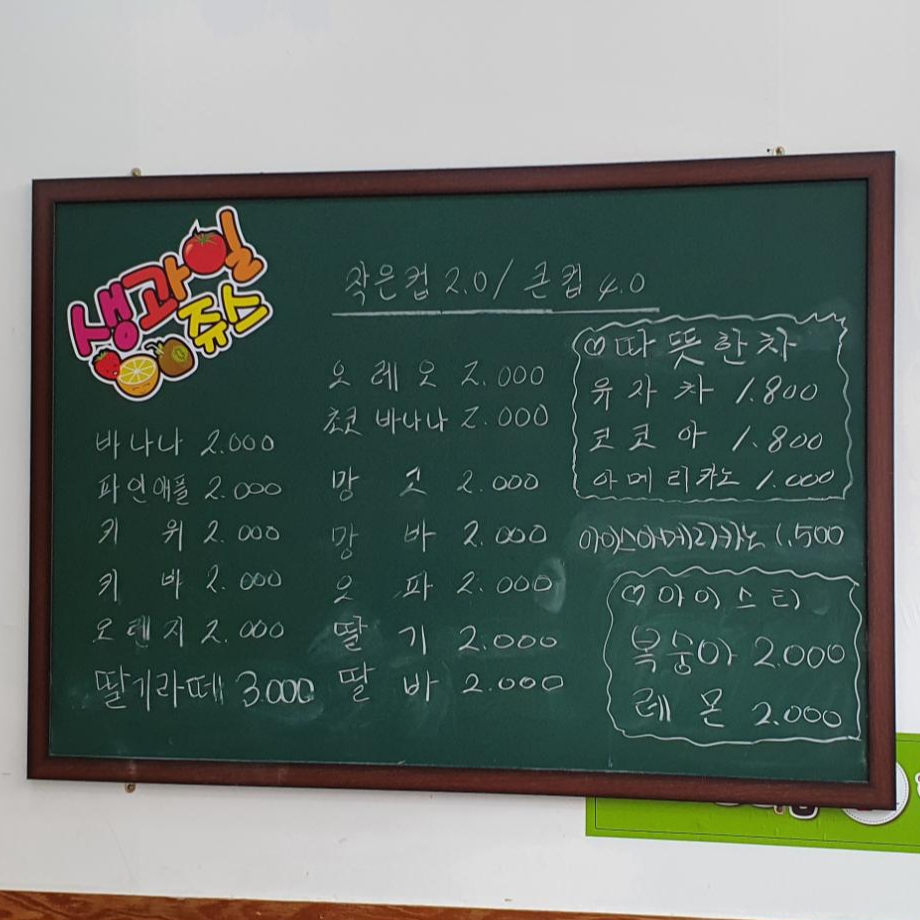 생과일
쥬스
작은컵 2.0 / 큰컵 4.0
바나나 2.000
파인애플 2.000
키위 2.000
키바 2.000
오렌지 2.000
딸기라떼 3.000
오레오 2.000
초코바나나 2.000
망고 2.000
망바 2.000
오파 2.000
딸기 2.000
딸바 2.000
♡따뜻한차
유자차 1.800
코코아 1.800
아메리카노 1.000
아이스아메리카노 1.500
♡아이스티
복숭아 2.000
레몬 2.000